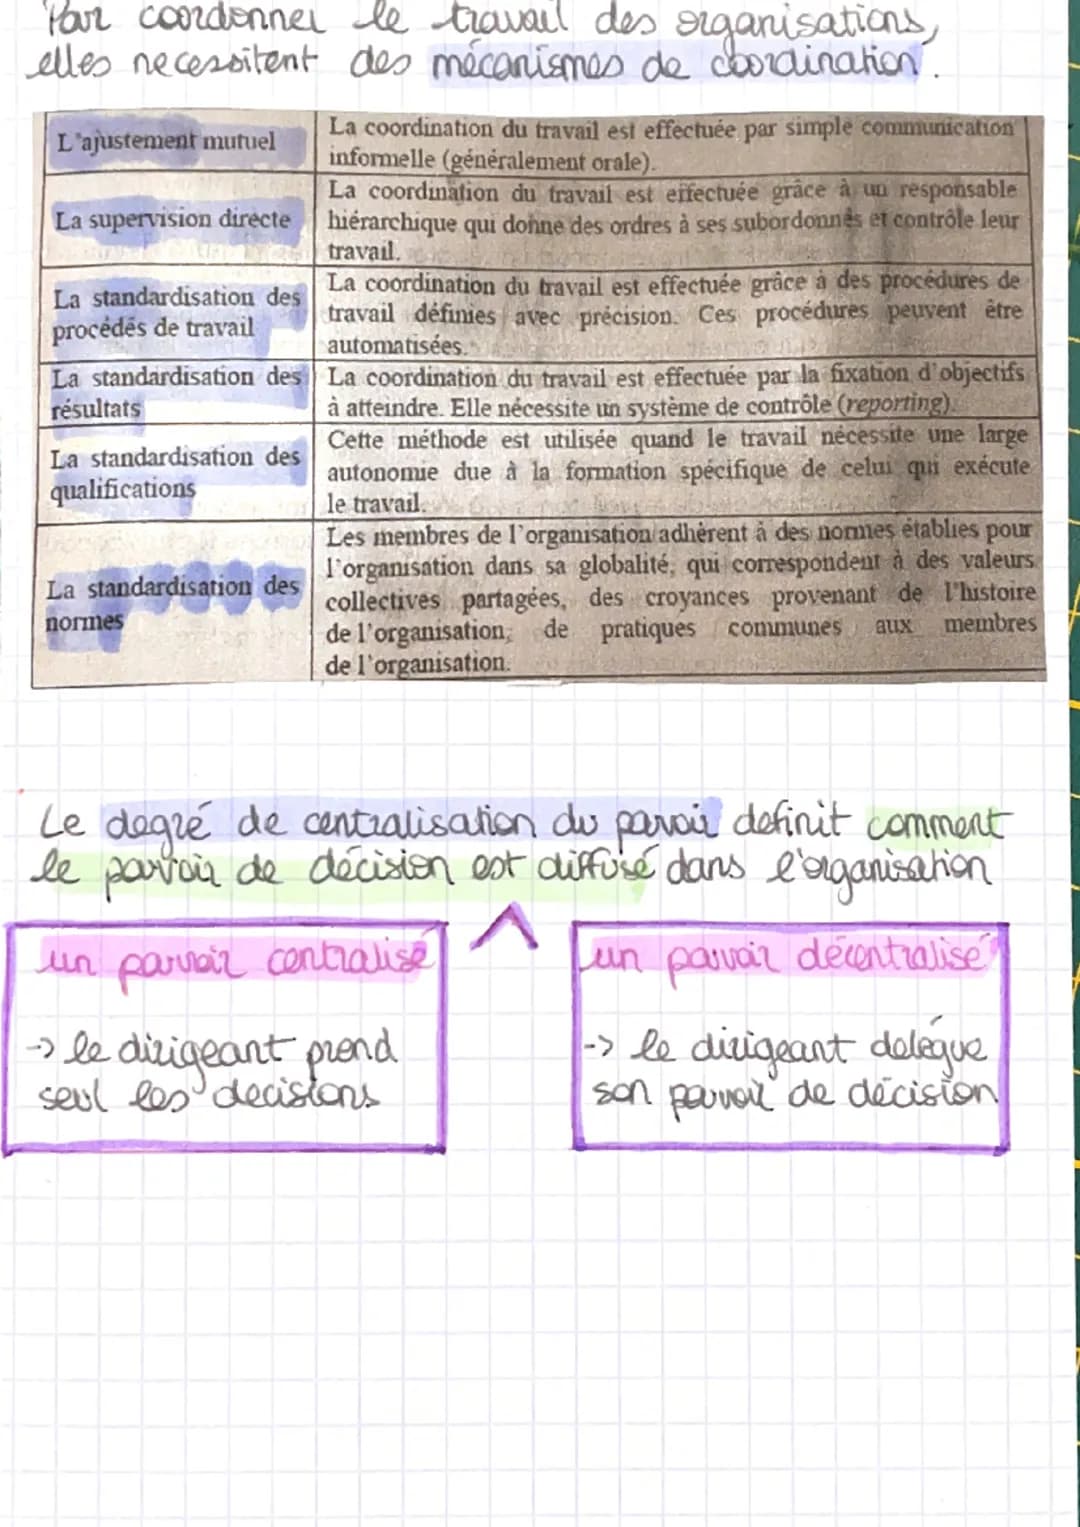 Pour coordonner le travail des organisations,
elles necessitent des mécanismes de coordination.
L'ajustement mutuel
La coordination du travail est effectuée par simple communication
informelle (généralement orale).
La supervision directe
La coordination du travail est effectuée grâce à un responsable
hiérarchique qui donne des ordres à ses subordonnés et contrôle leur
travail.
La standardisation des
procédés de travail
La coordination du travail est effectuée grâce à des procédures de
travail définies avec précision. Ces procédures peuvent être
automatisées.
La standardisation des
résultats
La coordination du travail est effectuée par la fixation d'objectifs
à atteindre. Elle nécessite un système de contrôle (reporting).
La standardisation des
qualifications
Cette méthode est utilisée quand le travail nécessite une large
autonomie due à la formation spécifique de celui qui exécute
le travail.
La standardisation des
normes
Les membres de l'organisation adhèrent à des normes établies pour
l'organisation dans sa globalité, qui correspondent à des valeurs
collectives partagées, des croyances provenant de l'histoire
de l'organisation, de pratiques communes aux membres
de l'organisation.
Le degré de centralisation du pouvoir definit comment
le pouvoir de décision est diffusé dans l'organisation
un pouvoir centralisé
-> le dirigeant prend
seul les decisions
un pouvoir décentralisé
-> le dirigeant delégue
son pouvoir de décision